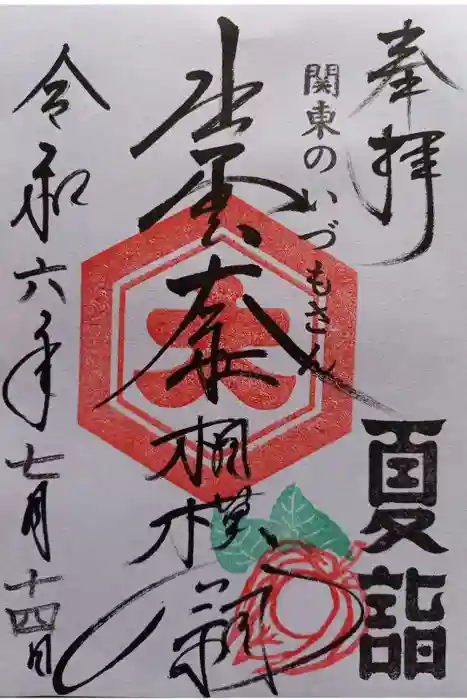 奉拝
夏詣
関東のいづもさん
出雲大社
相模分祠
大
令和六年七月十四日